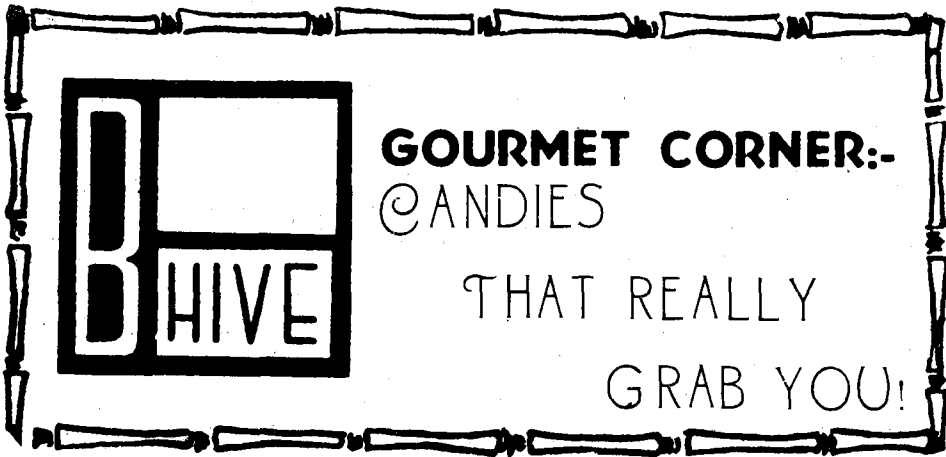 B
HIVE
GOURMET CORNER:-
CANDIES
THAT REALLY
GRAB YOU!